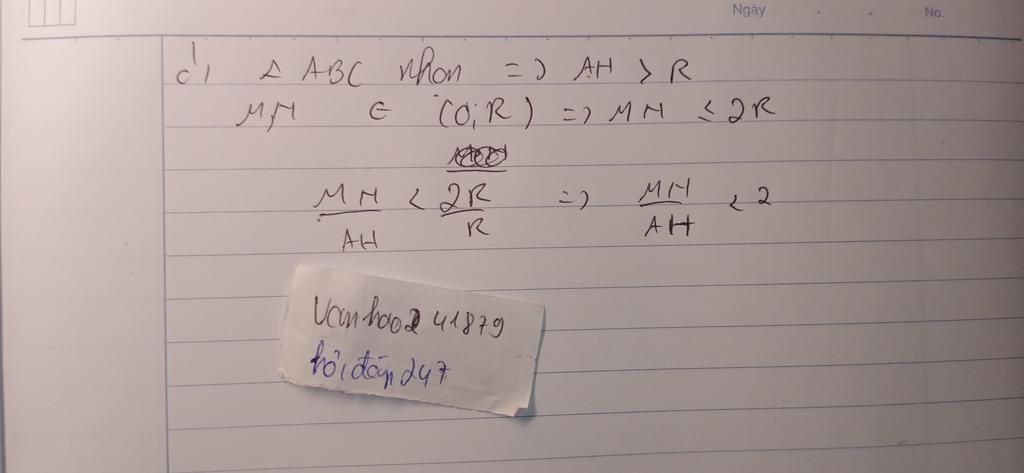 Ngày . . No.
c) Δ ABC nhọn => AH > R
M,N ∈ (O;R) => MN ≤ 2R
MN/AH < 2R/R => MN/AH < 2
Vanhao241879
hỏi đáp 247